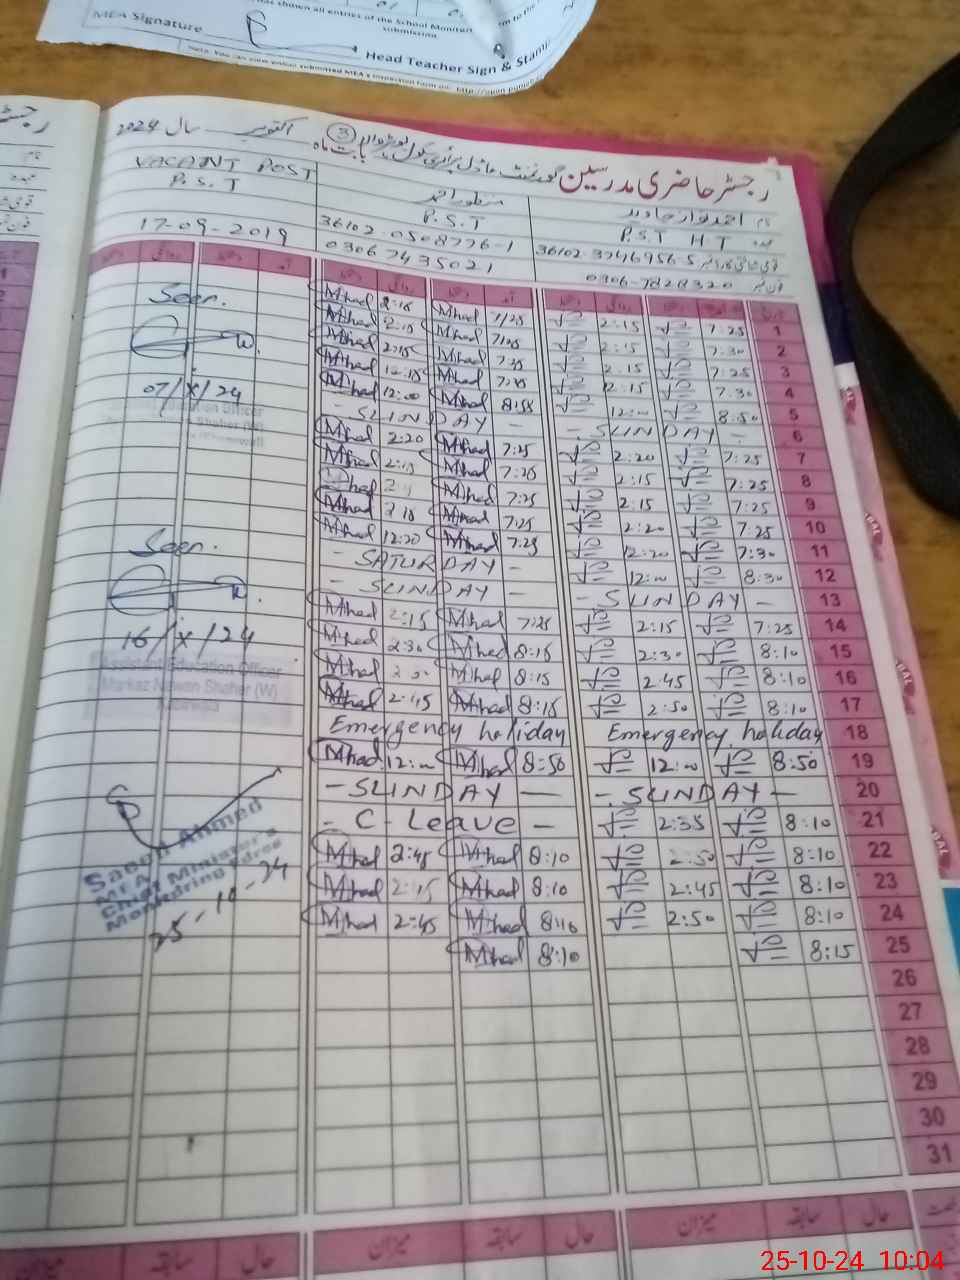 has shown all entries of the School Monitori
submission.
MEA Signature
Head Teacher Sign & Stamp
رجسٹر حاضری مدرسین گورنمنٹ ماڈل پرائمری سکول
بابت ماہ اکتوبر سال 2024
3
نام احمد نواز جاوید
منظور احمد
VACANT POST
عہدہ P.S.T H T
P.S.T
P.S.T
36102-0508776-1
17-09-2019
0306 7435021
0306-7828320
1 7:25 2:15 Mhad 7:25 Mhad 2:15
Seen.
2 7:30 2:15 Mhad 7:25 Mhad 2:15
3 7:25 2:15 Mhad 7:25 Mhad 2:15
4 7:30 12:15 Mhad 7:25 Mhad 12:15
07/X/24
5 8:50 12:00 Mhad 8:55 Mhad 12:00
6 - SUNDAY - - SUNDAY -
7 7:25 2:20 Mhad 7:25 Mhad 2:20
8 7:25 2:15 Mhad 7:25 Mhad 2:15
9 7:25 2:15 Mhad 7:25 Mhad
10 7:25 2:20 Mhad 7:25 Mhad
11 7:30 12:20 Mhad 7:25 Mhad 12:20
Seen.
12 8:30 12:00 - SATURDAY -
13 - SUNDAY - - SUNDAY -
14 7:25 2:15 Mhad 7:25 Mhad 2:15
15 8:10 2:30 Mhad 8:15 Mhad 2:30
16/X/24
16 8:10 2:45 Mhad 8:15 Mhad
Assistant Education Officer
Markaz Nawan Shaher (W)
17 8:10 2:50 Mhad 8:15 Mhad 2:45
18 Emergency holiday Emergency holiday
19 8:50 12:00 Mhad 8:50 Mhad 12:00
20 - SUNDAY - - SUNDAY -
21 8:10 2:35 - C-Leave -
22 8:10 2:50 Mhad 8:10 Mhad 2:45
23 8:10 2:45 Mhad 8:10 Mhad 2:45
24 8:10 2:50 Mhad 8:10 Mhad 2:45
25 8:15 Mhad 8:10
Ahmed
MEA
Chief Minister's
Monitoring Force
25-10-24
26
27
28
29
30
31
حال سابقہ میزان حال سابقہ میزان حال سابقہ میزان
25-10-24 10:04